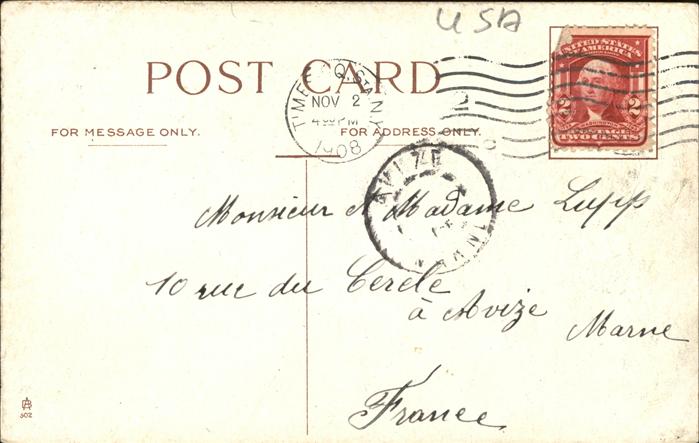 USA
UNITED STATES
OF AMERICA
2 2
POSTAGE
TWO CENTS
POST CARD
TIMES SQ. STA. N.Y.
NOV 2
4 30 PM
1908
FOR MESSAGE ONLY.
FOR ADDRESS ONLY.
AVIZE
MARNE
Monsieur & Madame Lupp
10 rue du Cercle
à Avize
Marne
France
502